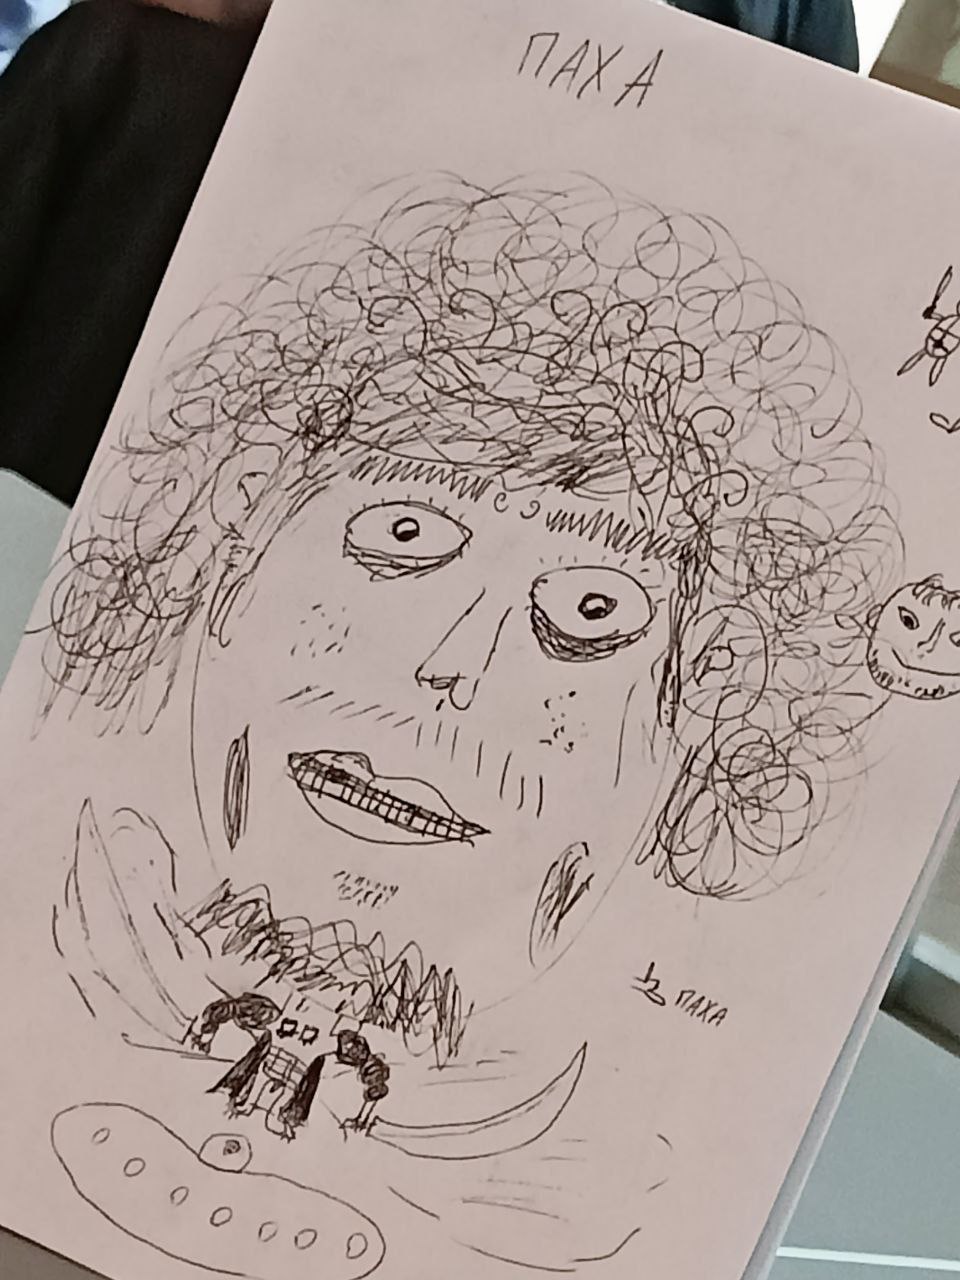 ПАХА
ПАХА